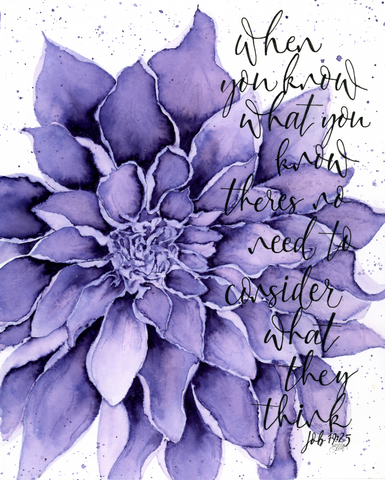 when
you know
what you
know
theres no
need to
consider
what
they
think
Job 19:25